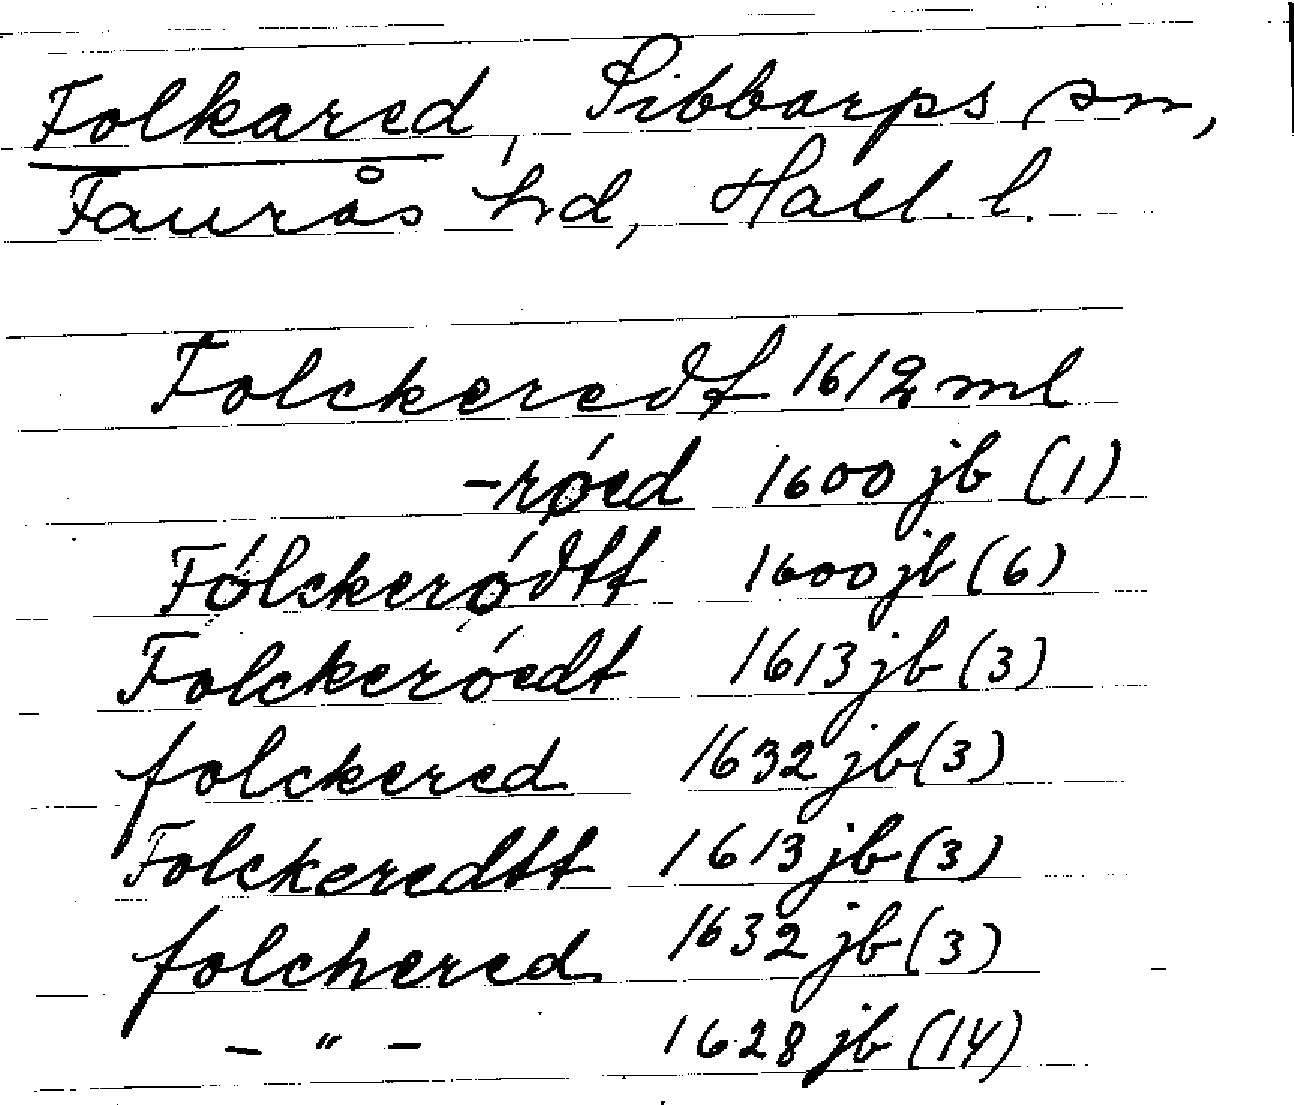 Folkared, Sibbarps sn,
Faurås hd, Hall. l.
Folckeredt 1612 ml
-röed 1600 jb (1)
Fölckerödtt 1600 jb (6)
Folckeróedt 1613 jb (3)
folckered 1632 jb (3)
Folckeredtt 1613 jb (3)
folchered 1632 jb (3)
- " - 1628 jb (14)